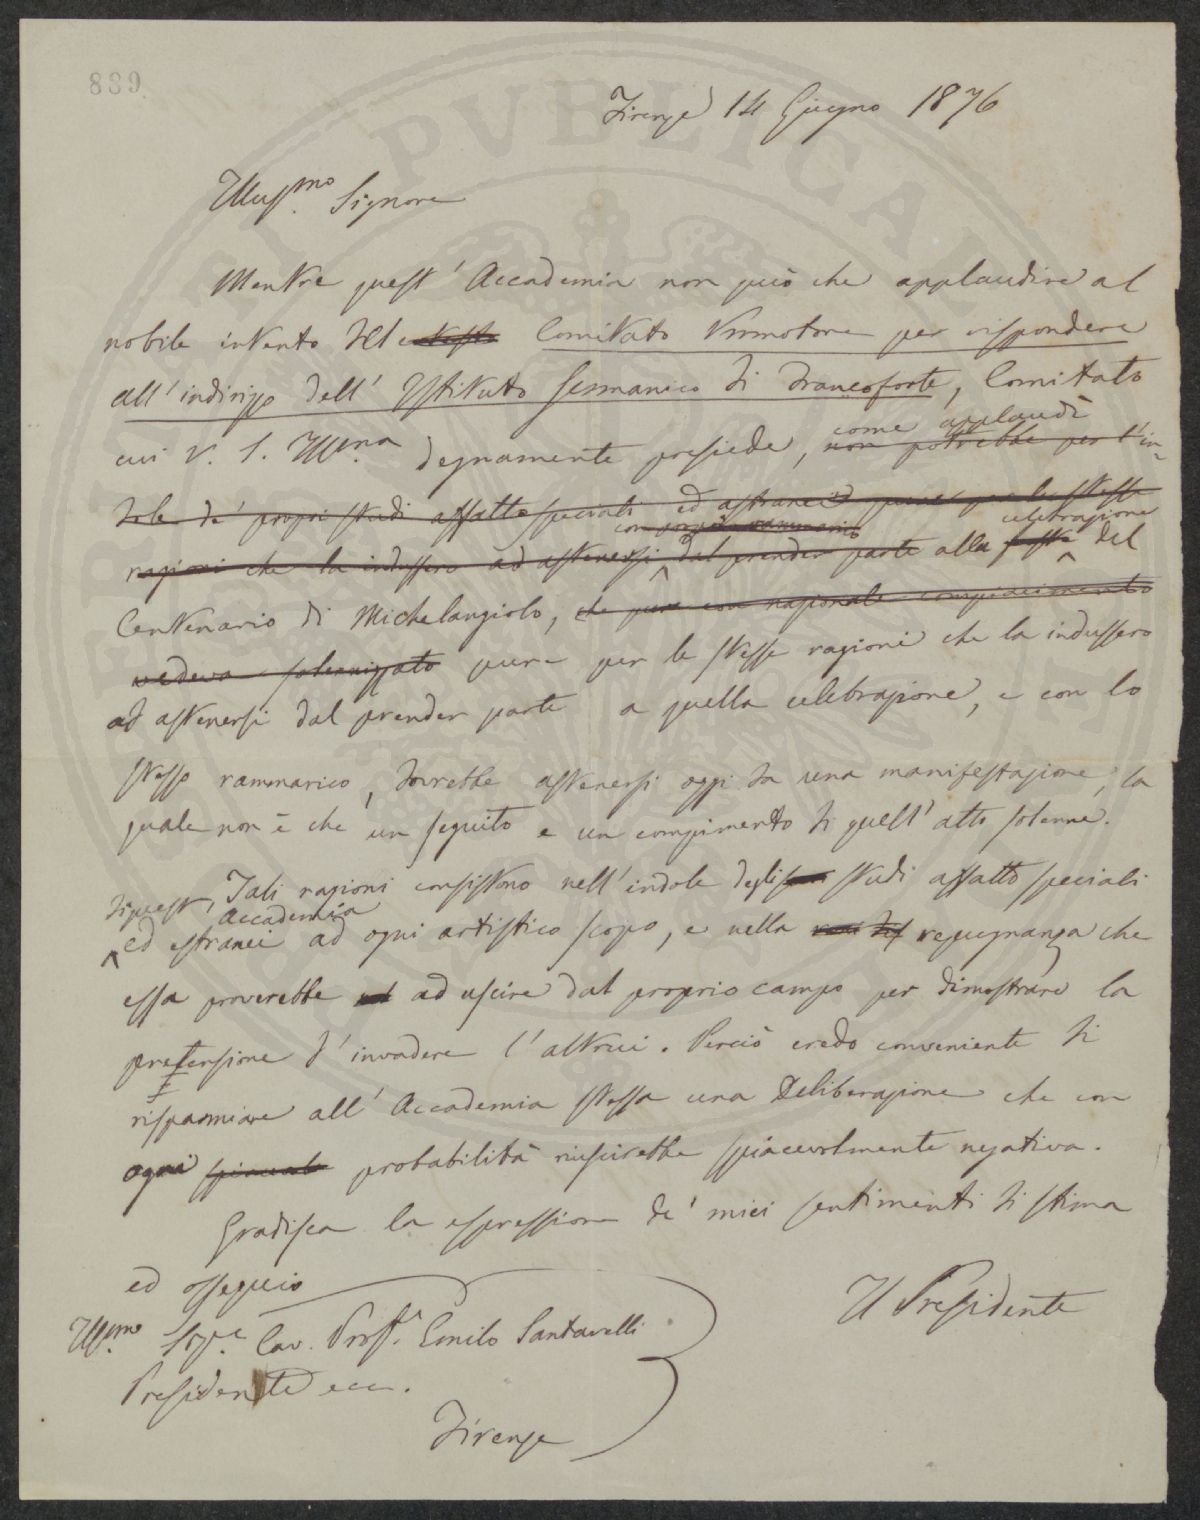 839
Firenze 14 Giugno 1876
Illus.mo Signore
Mentre quest' Accademia non può che applaudire al
nobile intento del Comitato Promotore per rispondere
all'indirizzo dell' Istituto Germanico di Francoforte, Comitato
come applaudì
cui V. S. Ill.ma degnamente presiede, non potrebbe per l'in-
dole de' propri studi affatto speciali ed estranei pure per le stesse
con proprio rammarico celebrazione
ragioni che la indussero ad astenersi dal prender parte alla festa del
Centenario di Michelangiolo, che pure con nazionale compiacimento
vedeva solennizzato pure per le stesse ragioni che la indussero
ad astenersi dal prender parte a quella celebrazione, e con lo
stesso rammarico, dovrebbe astenersi oggi da una manifestazione, la
quale non è che un seguito e un compimento di quell' atto solenne.
Tali ragioni consistono nell'indole degli studi affatto speciali
di quest' Accademia
ed estranei ad ogni artistico scopo, e nella repugnanza che
essa proverebbe ad uscire dal proprio campo per dimostrare la
pretensione d'invadere l'altrui. Perciò credo conveniente di
risparmiare all' Accademia stessa una Deliberazione che con
ogni probabilità riuscirebbe spiacevolmente negativa.
Gradisca la espressione de' miei sentimenti di stima
ed ossequio
Il Presidente
Ill.mo Sig.re Cav. Prof. Emilo Santarelli
Presidente ecc.
Firenze